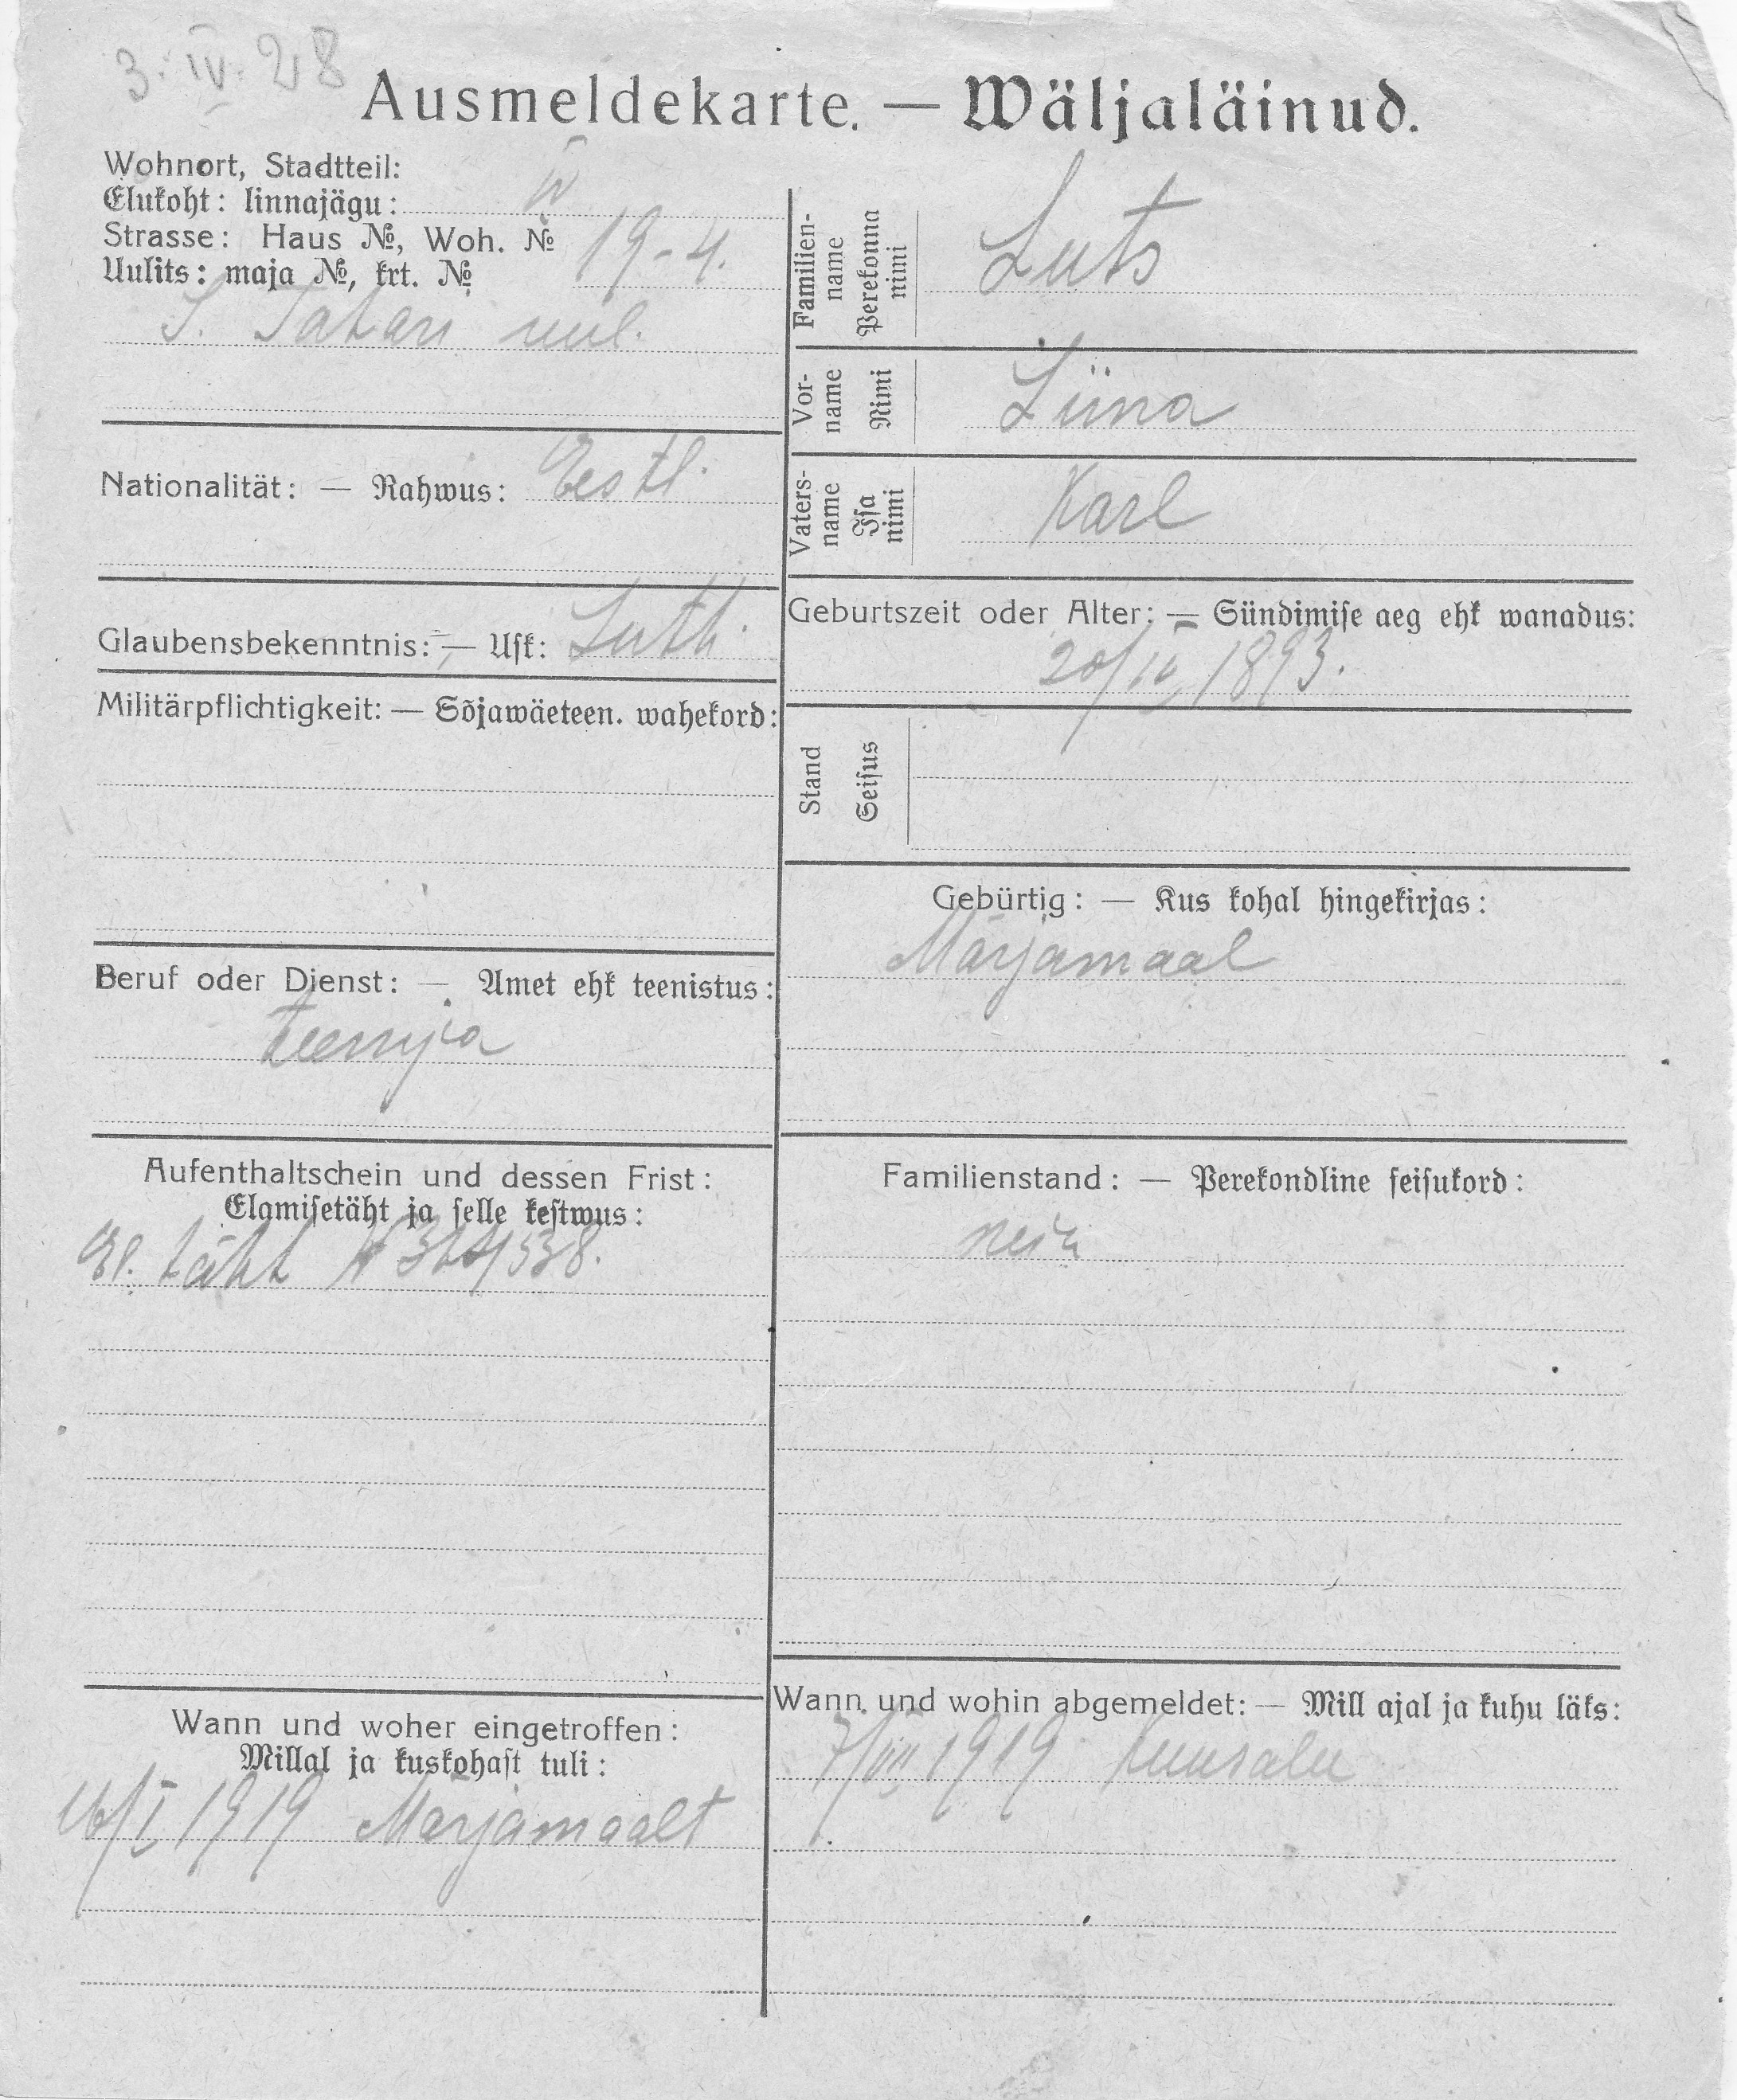 3. IV. 28
Ausmeldekarte. — Wäljaläinud.
Wohnort, Stadtteil:
Elukoht: linnajägu: IV
Strasse: Haus №, Woh. №
Uulits: maja №, krt. № 19-4.
S. Tatari uul.
Nationalität: — Rahwus: Eestl.
Glaubensbekenntnis: — Usk: Luth.
Militärpflichtigkeit: — Sõjawäeteen. wahekord:
Beruf oder Dienst: — Amet ehk teenistus:
teenija
Aufenthaltschein und dessen Frist:
Elamisetäht ja selle kestwus:
El. täht №
Wann und woher eingetroffen:
Millal ja kuskohast tuli:
16/I 1919 Märjamaalt
Familien-
name
Perekonna
nimi
Luts
Vor-
name
Nimi
Liina
Vaters-
name
Isa
nimi
Karl
Geburtszeit oder Alter: — Sündimise aeg ehk wanadus:
20/IV 1893.
Stand
Seisus
Gebürtig: — Kus kohal hingekirjas:
Märjamaal
Familienstand: — Perekondline seisukord:
neiu
Wann und wohin abgemeldet: — Mill ajal ja kuhu läks:
7/VIII 1919 Kuusalu